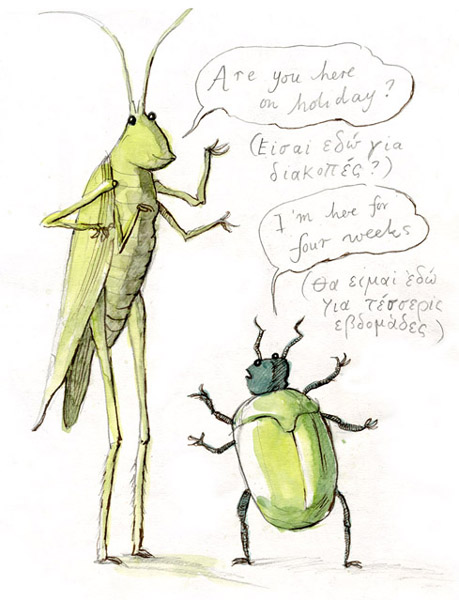 Are you here
on holiday?
(Είσαι εδώ για
διακοπές?)
I'm here for
four weeks
(Θα είμαι εδώ
για τέσσερις
εβδομάδες)